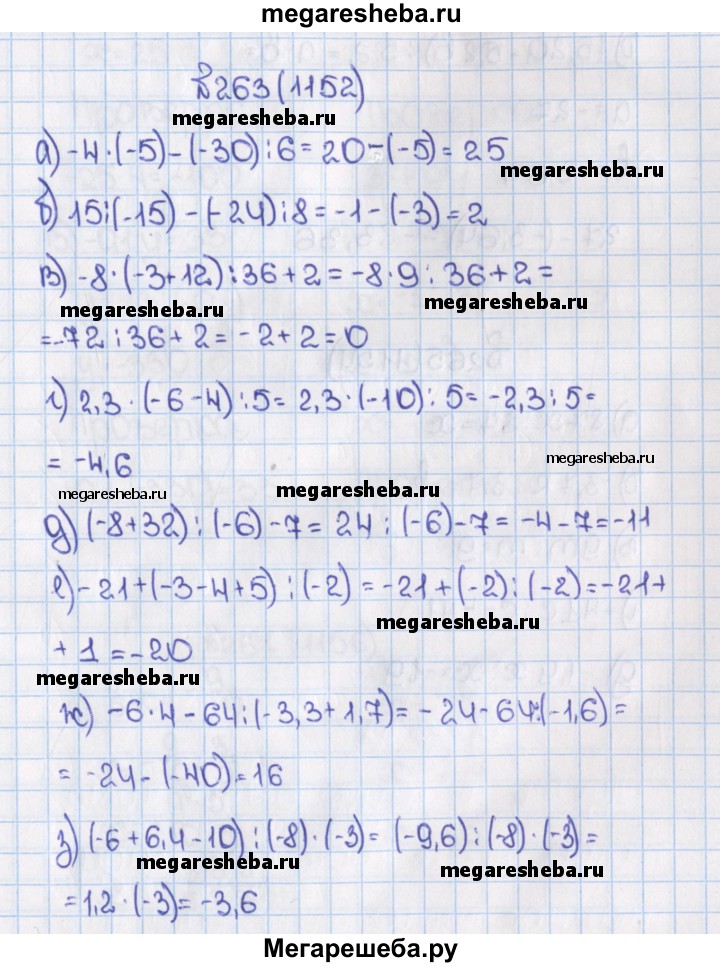 megaresheba.ru
№263(1152)
megaresheba.ru
а) -4·(-5)-(-30):6=20-(-5)=25
megaresheba.ru
б) 15:(-15)-(-24):8=-1-(-3)=2
в) -8·(-3+12):36+2=-8·9:36+2=
megaresheba.ru
megaresheba.ru
=-72:36+2=-2+2=0
г) 2,3·(-6-4):5=2,3·(-10):5=-2,3:5=
=-4,6
megaresheba.ru
megaresheba.ru
megaresheba.ru
д) (-8+32):(-6)-7=24:(-6)-7=-4-7=-11
е) -21+(-3-4+5):(-2)=-21+(-2):(-2)=-21+
megaresheba.ru
+1=-20
megaresheba.ru
ж) -6·4-64:(-3,3+1,7)=-24-64:(-1,6)=
=-24-(-40)=16
з) (-6+6,4-10):(-8)·(-3)=(-9,6):(-8)·(-3)=
megaresheba.ru
megaresheba.ru
=1,2·(-3)=-3,6
Мегарешеба.ру